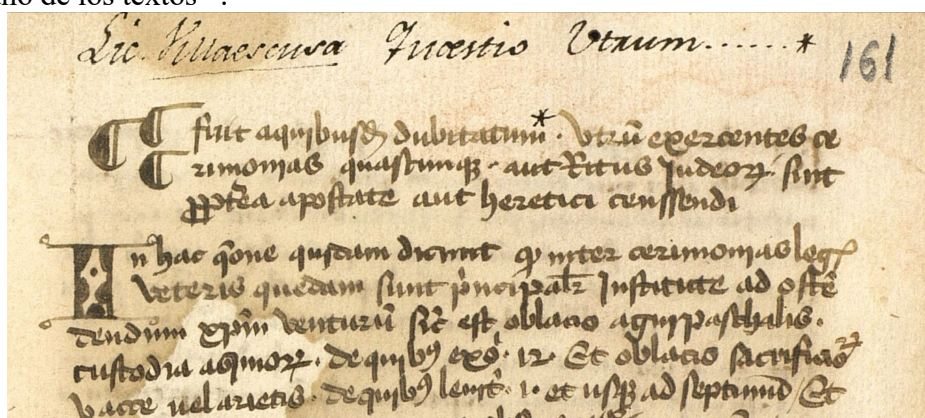 ano de los textos
Lic. Villaescusa Quæstio Utrum.......*
161
fuit aquibusđ dubitatum* · Vtrū exercentes ce
rimonias quascunqꝫ · aut Ritus Judeoꝝ sint
ꝓpťea apostate aut heretici censsendi
In hac q̄one quidam dicunt ꝙ inter cerimonias leg
veteris quedam sunt pͥncipalr̄ Institute ad ostē
dendum xp̄m venturū sic̄ est oblacio agni paschalis ·
custodia asimoꝝ · de quibꝰ exo · 12 · Et oblacio sacrificioꝝ
vacce uel arietis · de quibꝰ leuit · 1 · et usqꝫ ad septimū Et